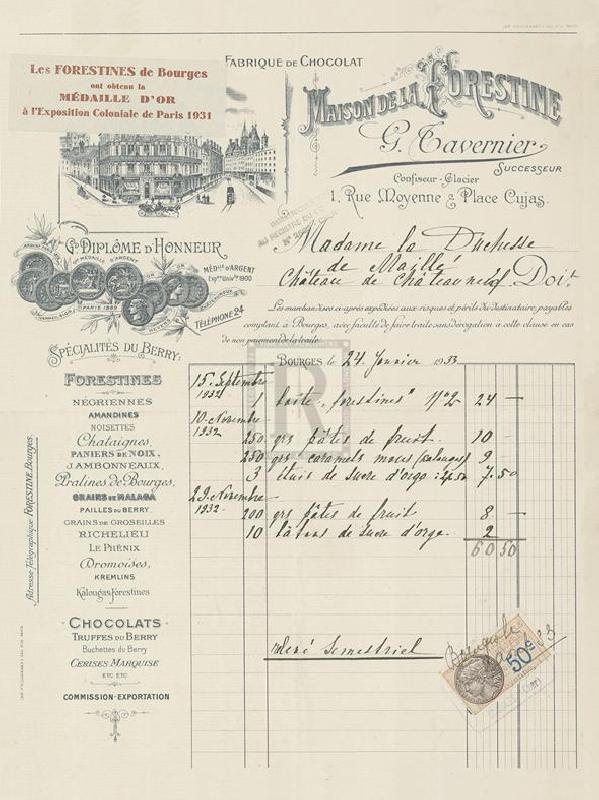 FABRIQUE DE CHOCOLAT
Les FORESTINES de Bourges
ont obtenu la
MÉDAILLE D'OR
à l'Exposition Coloniale de Paris 1931
MAISON DE LA FORESTINE
G. Tavernier
SUCCESSEUR
Confiseur-Glacier
1, Rue Moyenne & Place Cujas.
Gd DIPLÔME D'HONNEUR
MÉDlle D'ARGENT
PARIS 1889
TÉLÉPHONE 24
Madame la Duchesse
de Maillé
Château de Châteauneuf Doit
Les marchandises ci-après expédiées aux risques et périls du destinataire, payables
comptant à Bourges, avec faculté de faire traite sans dérogation à cette clause en cas
de non paiement de la traite.
BOURGES le 24 Janvier 1933
SPÉCIALITÉS DU BERRY:
FORESTINES
NÉGRIENNES
AMANDINES
NOISETTES
Chataignes,
PANIERS DE NOIX,
JAMBONNEAUX,
Pralines de Bourges,
GRAINS DE MALAGA
PAILLES DU BERRY
GRAINS DE GROSEILLES
RICHELIEU
LE PHÉNIX
Dromoises,
KREMLINS
Kalougas Forestines
CHOCOLATS
TRUFFES DU BERRY
Buchettes du Berry
CERISES MARQUISE
ETC. ETC.
COMMISSION-EXPORTATION
Adresse Télégraphique: FORESTINE, Bourges
15 Septembre
1932 1 boite "forestines" N°2 24 —
10 Novembre
1932
250 grs pâtes de fruit 10 —
250 grs caramels mous (kalougas) 9
3 étuis de sucre d'orge à 2.50 7.50
29 Novembre
1932 200 grs pâtes de fruit 8 —
10 bâtons de sucre d'orge. 2
60 50
relevé Semestriel
50c
R